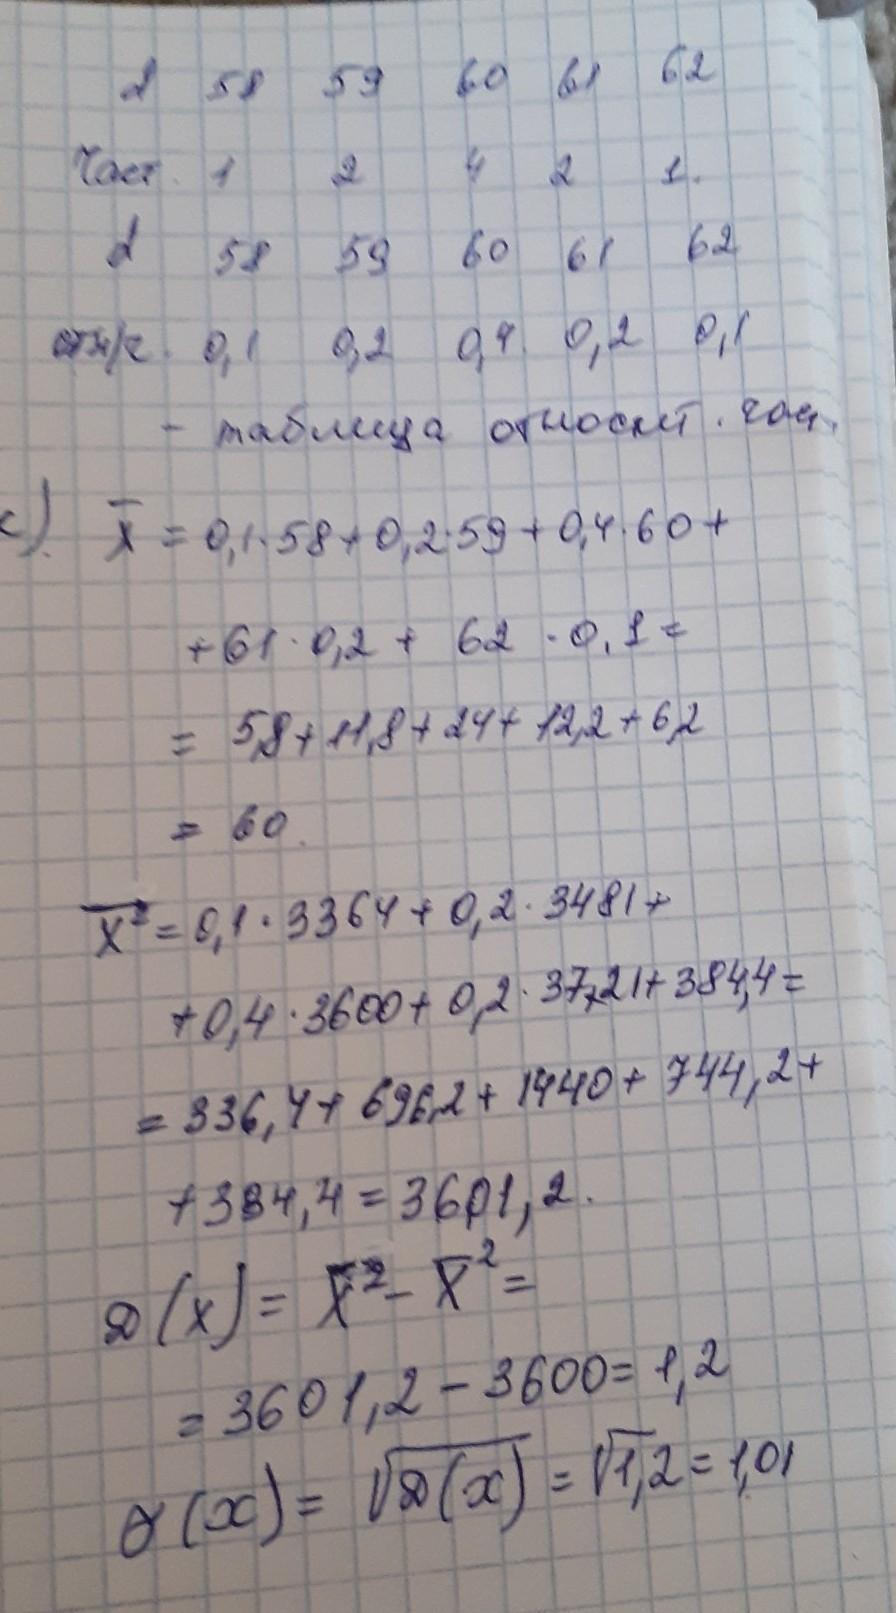 d 58 59 60 61 62
Част. 1 2 4 2 1.
d 58 59 60 61 62
отн/ч. 0,1 0,2 0,4 0,2 0,1
- таблица относит. час.
с). x̅ = 0,1·58+0,2·59+0,4·60+
+61·0,2+ 62·0,1=
= 5,8+11,8+24+12,2+6,2
= 60.
x̅²̅ = 0,1·3364+0,2·3481+
+0,4·3600+0,2·3721+384,4=
=336,4+696,2+1440+744,2+
+384,4=3601,2.
D(x)= x̅²̅ - x̅² =
=3601,2-3600=1,2
σ(x)= √D(x) = √1,2 = 1,01